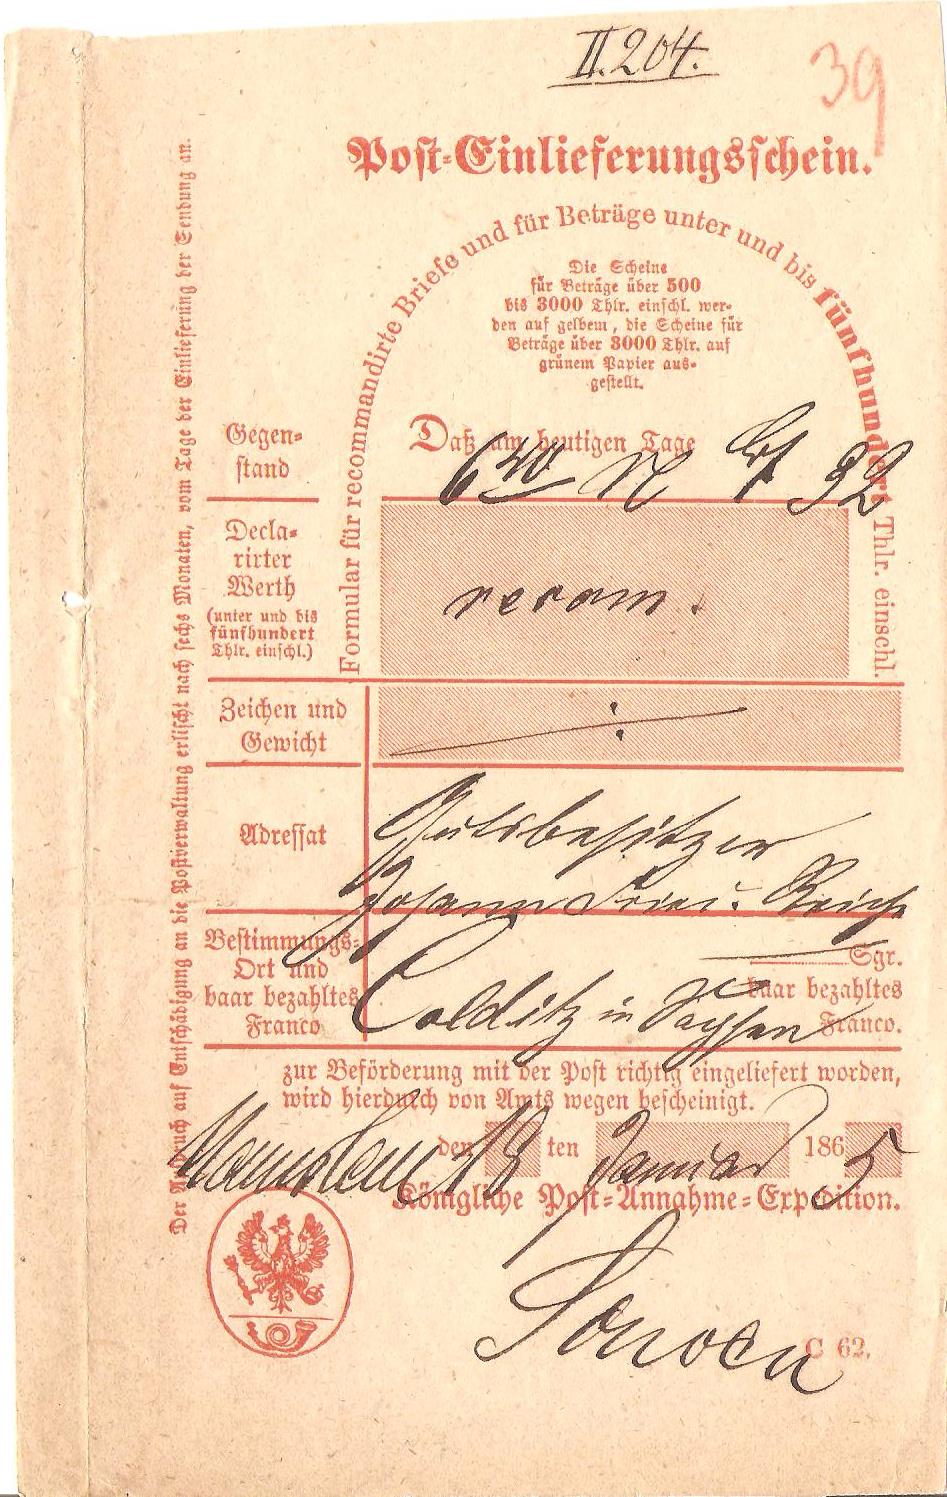 II. 204.
39
Post-Einlieferungsschein.
Formular für recommandirte Briefe und für Beträge unter und bis fünfhundert Thlr. einschl.
Die Scheine
für Beträge über 500
bis 3000 Thlr. einschl. wer-
den auf gelbem, die Scheine für
Beträge über 3000 Thlr. auf
grünem Papier aus-
gestellt.
Der Anspruch auf Entschädigung an die Postverwaltung erlischt nach sechs Monaten, vom Tage der Einlieferung der Sendung an.
Daß am heutigen Tage
Gegen-
stand
32
Decla-
rirter
Werth
(unter und bis
fünfhundert
Thlr. einschl.)
recom.
Zeichen und
Gewicht
Adressat
Gutsbesitzer
Johann Fried. Reiche
Bestimmungs-
Ort und
baar bezahltes
Franco
Colditz in Sachsen
Sgr.
baar bezahltes
Franco.
zur Beförderung mit der Post richtig eingeliefert worden,
wird hierdurch von Amts wegen bescheinigt.
den 18 ten Januar 1865
Königliche Post-Annahme-Expedition.
C 62.